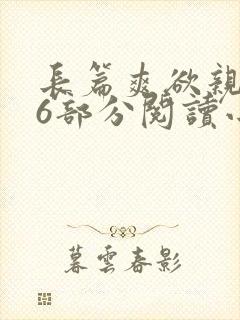 長篇爽欲親
6部分閱讀
暮雲春影